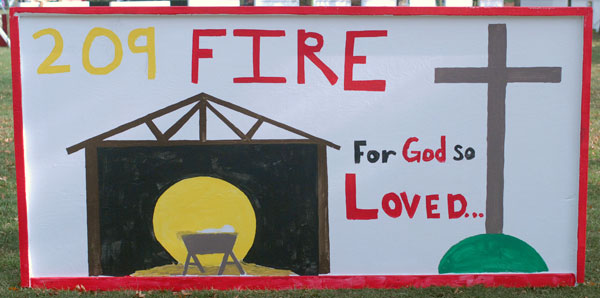 209 FIRE
For God so
LOVED...